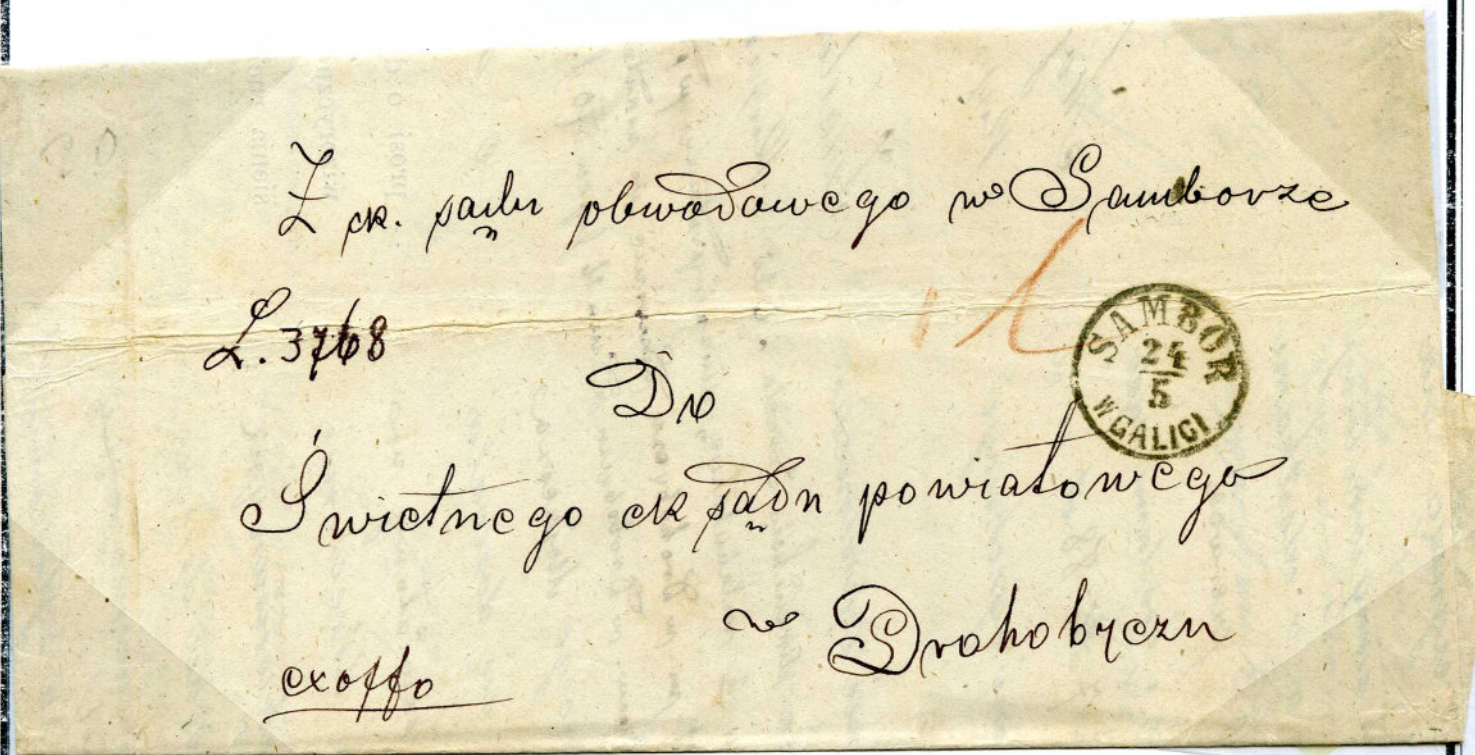 Z ck. sądu obwodowego w Samborze
L. 3768
Do
SAMBOR
24
5
W GALICI
Świetnego ck sądu powiatowego
w Drohobyczu
exoffo